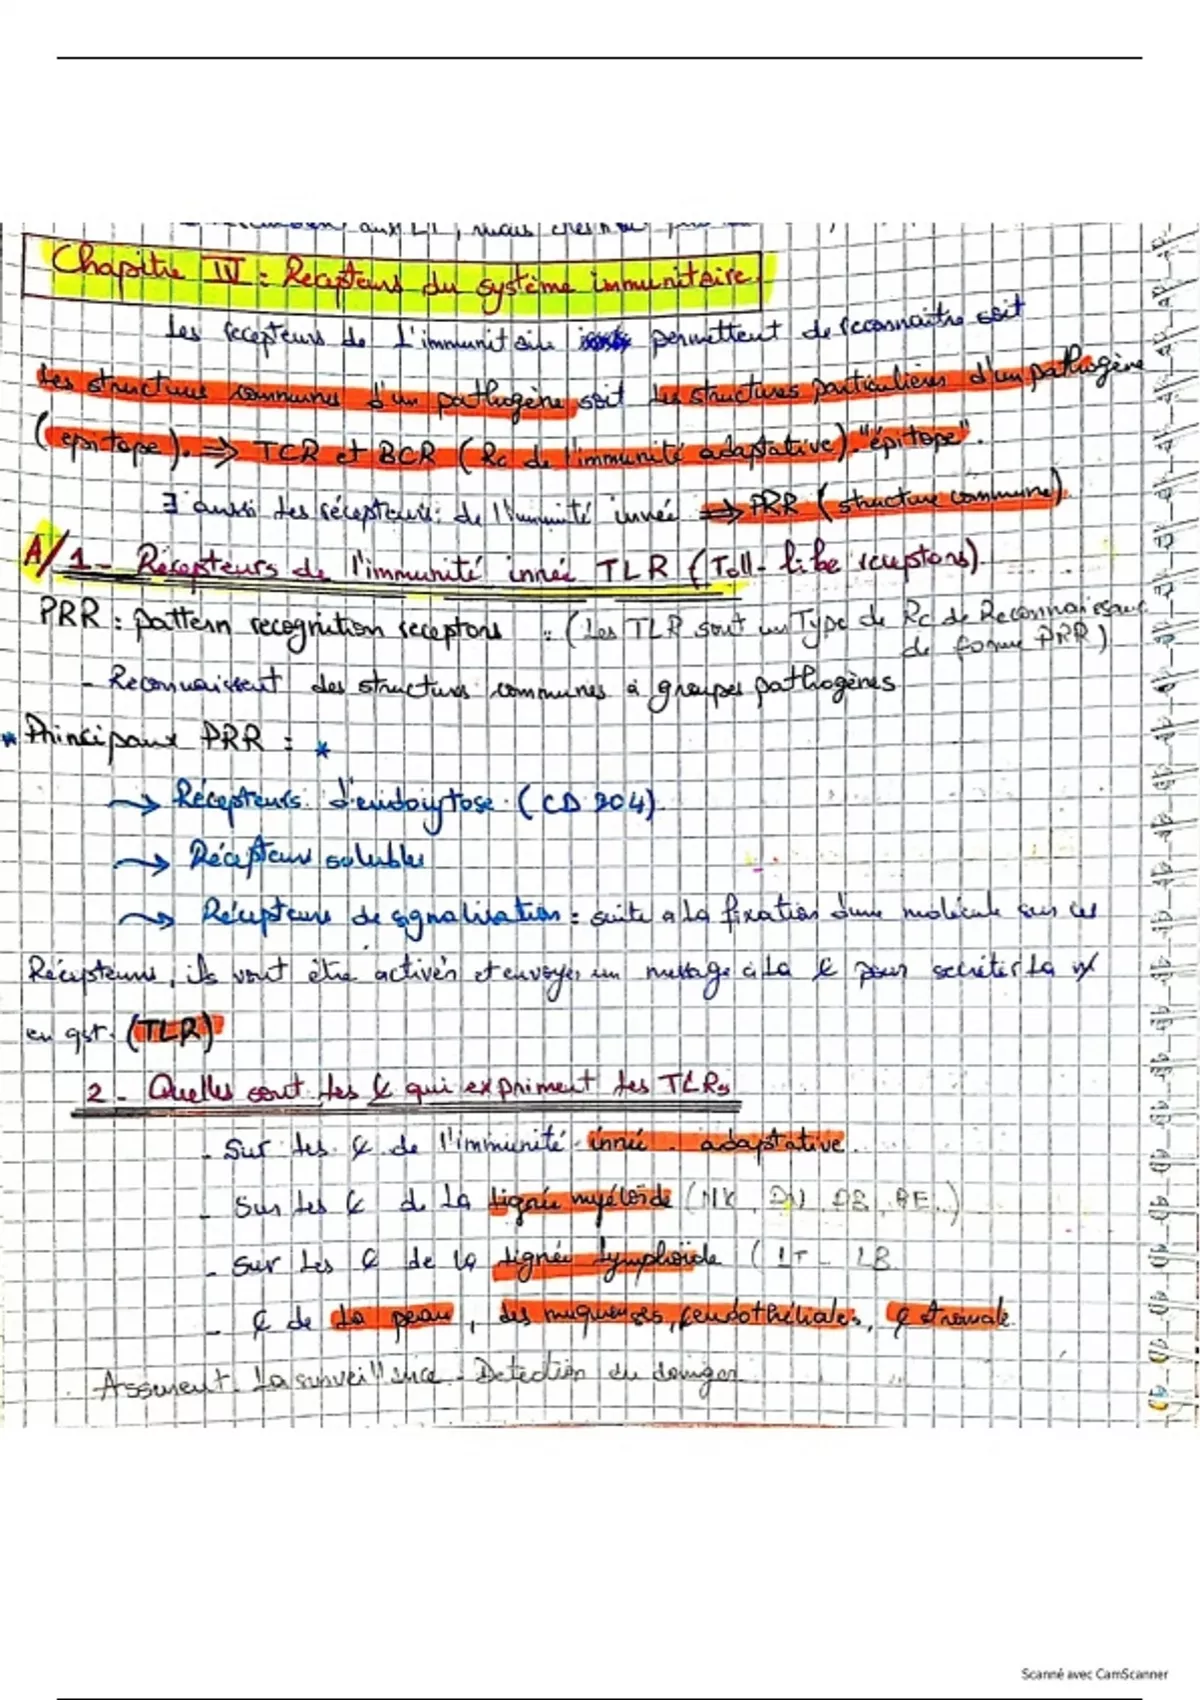 aux LT, mais
Chapitre IV : Récepteurs du système immunitaire.
Les récepteurs de l'immunitaire permettent de reconnaître soit
des structures communes d'un pathogène soit des structures particulières d'un pathogène
(épitope). ⇒ TCR et BCR (Rc de l'immunité adaptative). "épitope".
∃ aussi des récepteurs de l'immunité innée ⇒ PRR (structure commune)
A/ 1 - Récepteurs de l'immunité innée TLR (Toll-like receptors).
PRR : pattern recognition receptors : (Les TLR sont un Type de Rc de Reconnaissance
de forme PRR)
- Reconnaissent des structures communes à groupes pathogènes
* Principaux PRR : *
→ Récepteurs d'endocytose (CD 204).
→ Récepteurs solubles
→ Récepteurs de signalisation : suite à la fixation d'une molécule sur ces
Récepteurs, ils vont être activés et envoyer un message à la ¢ pour secréter la
en qst. (TLR)
2 - Quelles sont les ¢ qui expriment les TLRs
- Sur les ¢ de l'immunité innée . adaptative.
- Sur les ¢ de la lignée myéloïde (NK,
- Sur les ¢ de la lignée lymphoïde ( LT - LB
- ¢ de la peau, des muqueuses, endothéliales, ¢ stromale.
Assurent. La surveillance - Detection du danger
Scanné avec CamScanner